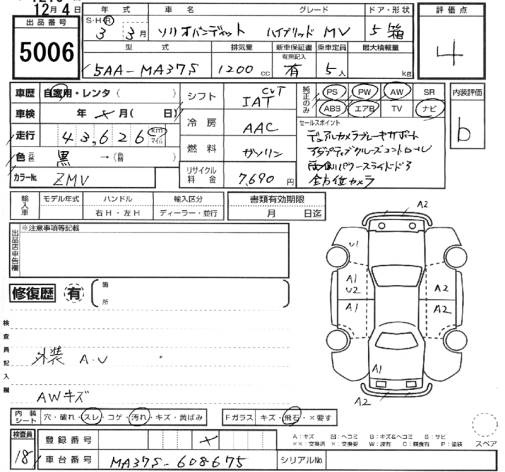 12月4日
出品番号
5006
年式 車名 グレード ドア・形状
S・H・R 3 3月 ソリオバンディット ハイブリッド MV 5 箱
評価点
4
型式 排気量 新車保証書 乗車定員 最大積載量
有無記入
5AA-MA37S 1200cc 有 5人 kg
車歴 自家用・レンタ( )
車検 年 月( 日)
走行 43,626 km マイル
色 黒 →( )
カラーNo. ZMV
シフト CVT IAT
冷房 AAC
燃料 ガソリン
リサイクル料金 7,690円
純正のみ
PS PW AW SR
ABS エアB TV ナビ
内装評価
b
セールスポイント
デュアルカメラブレーキサポート
アダプティブクルーズコントロール
両側パワースライドドア
全方位カメラ
輸入車
モデル年式 ハンドル 輸入区分
右H・左H ディーラー・並行
書類有効期限
月 日迄
出品店申告欄
※注意事項等記載
修復歴 有
箇所
検査員記入欄
外装 A・U
AWキズ
A2
U1
A1
U2
A2
A1
A2
A1
A2
A2
スペア
内装シート 穴・破れ・スレ・コゲ・汚れ・キズ・黄ばみ
Fガラス キズ・飛石・×要す
検査員
18
登録番号
車台番号 MA37S-608675
シリアルNo.
A:キズ U:ヘコミ B:キズ&ヘコミ S:サビ
××:交換済 ×:交換要 W:波有 C:腐食有 P:塗装